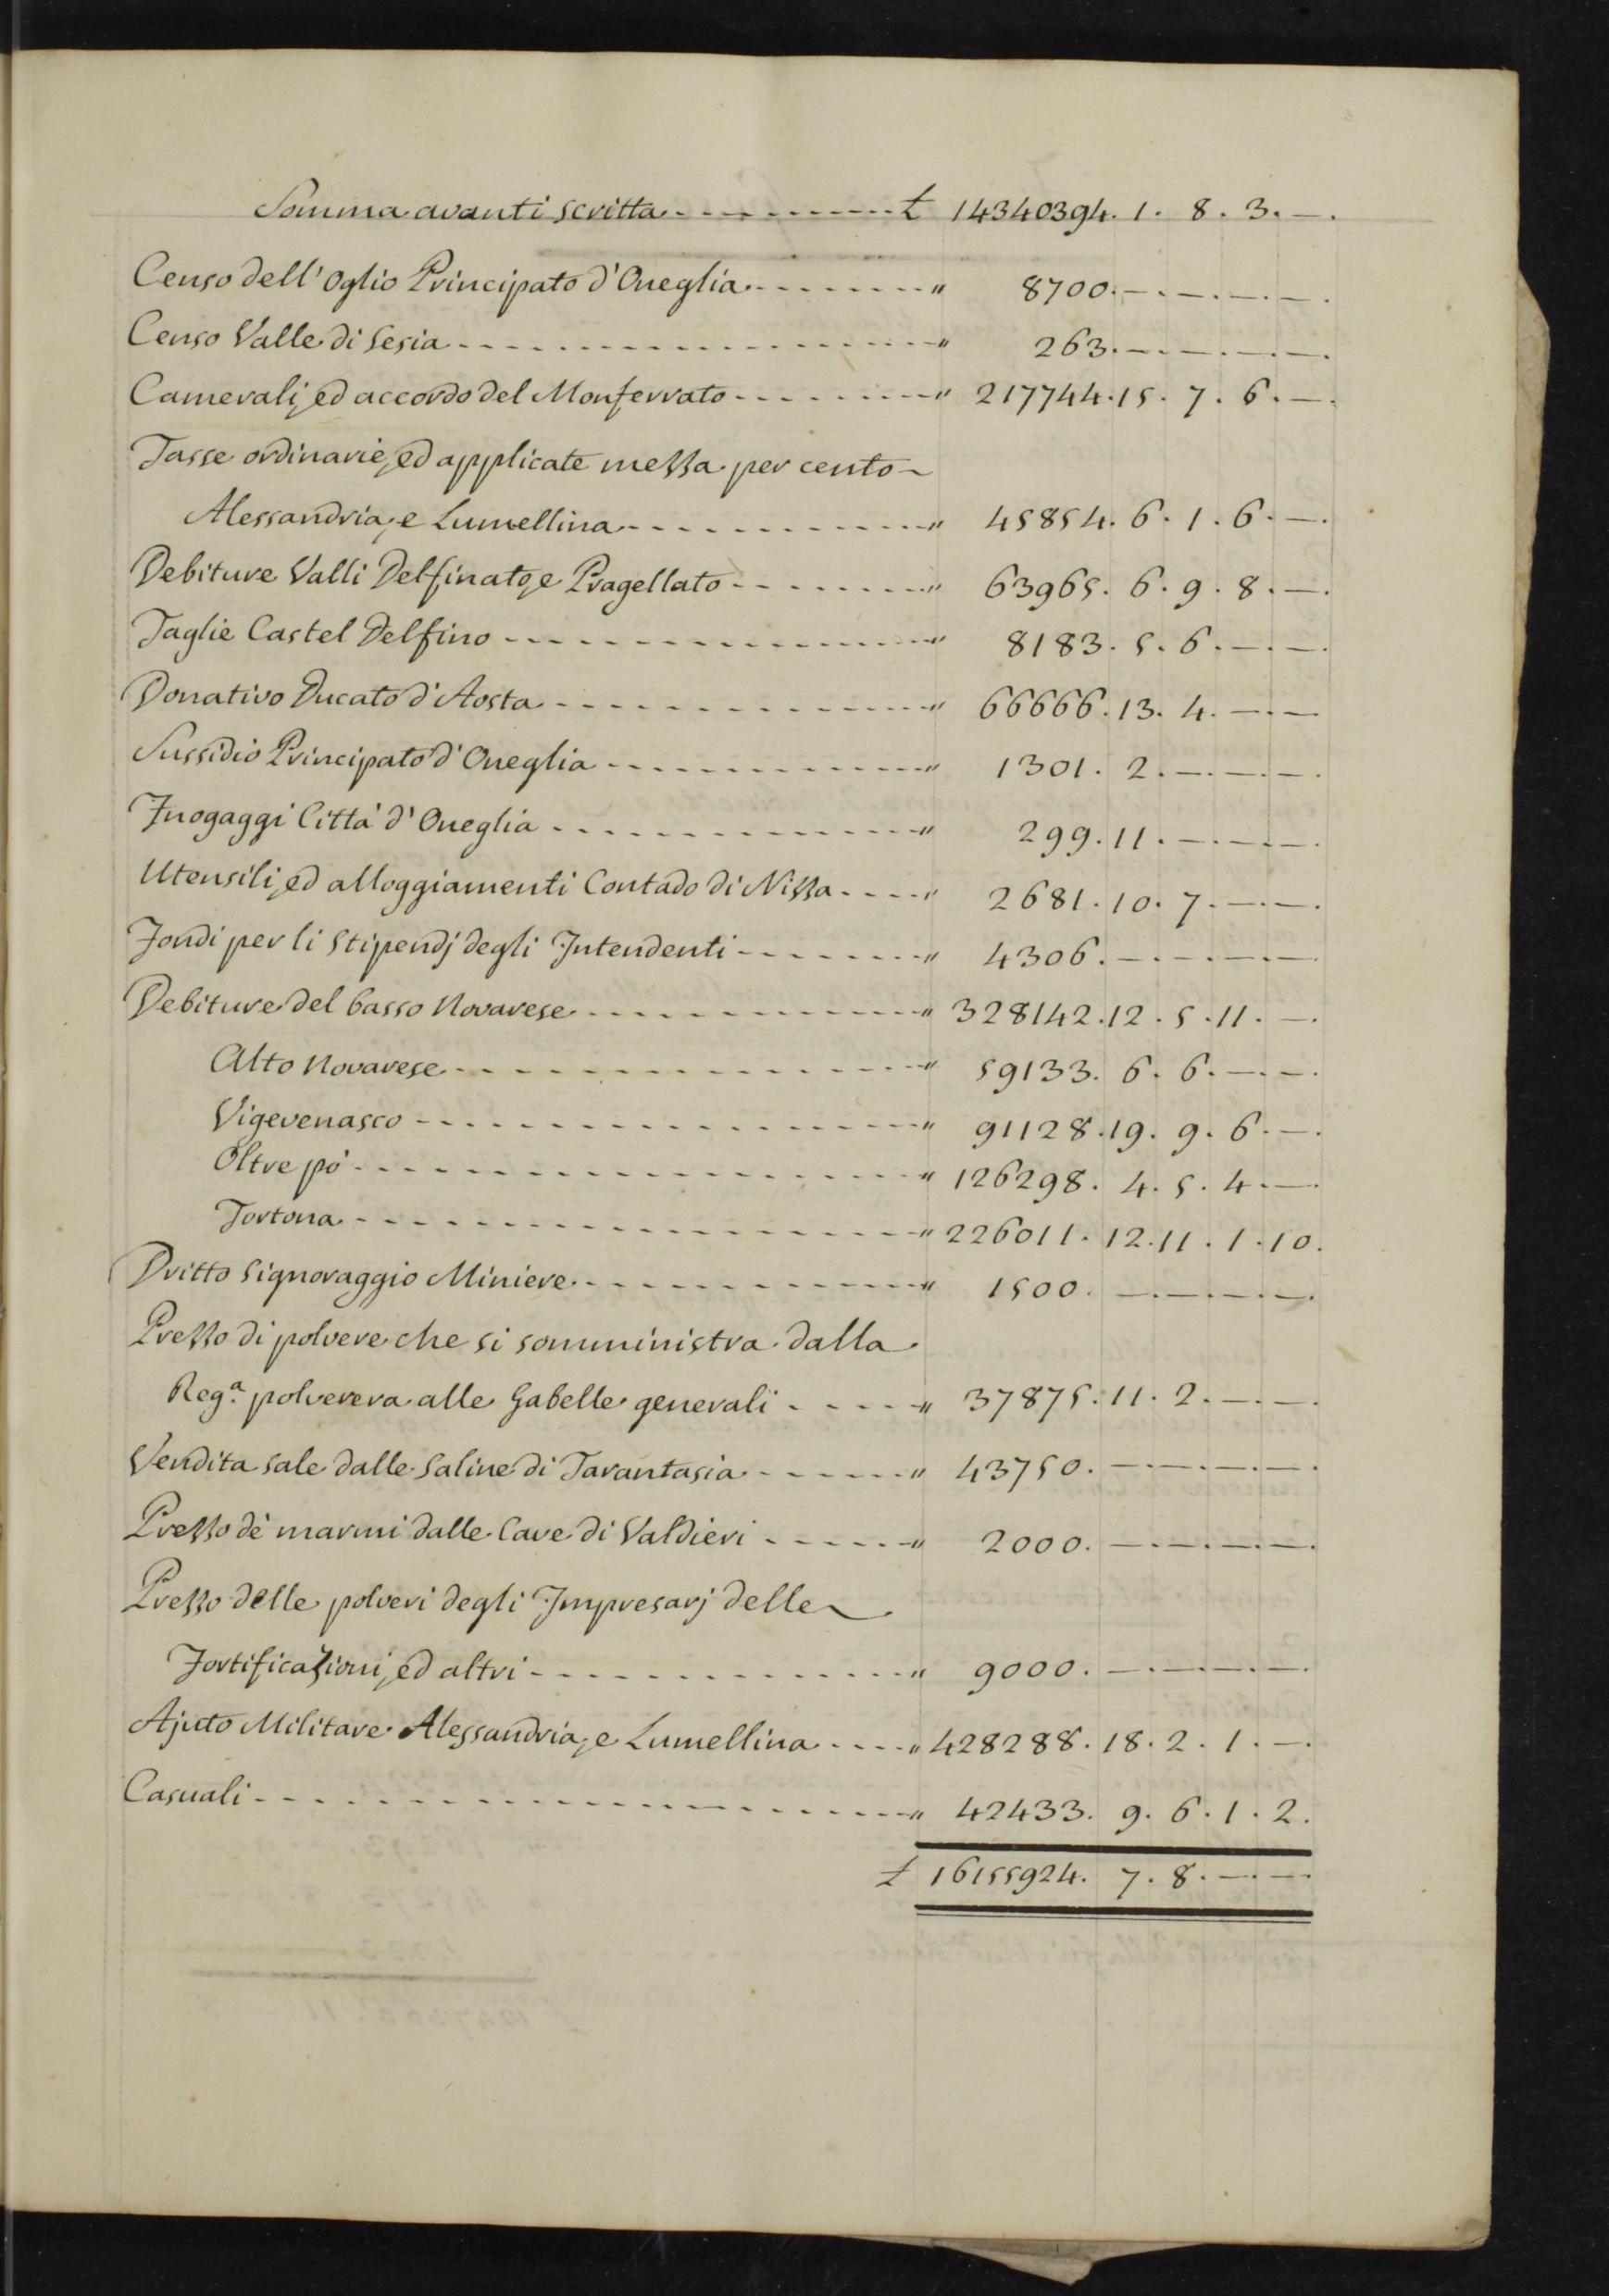 Somma avanti scritta £ 14340394. 1. 8. 3. —.
Censo dell' Oglio Principato d'Oneglia " 8700. —. —. —. —.
Censo Valle di Sesia " 263. —. —. —. —.
Camerali, ed accordo del Monferrato " 217744. 15. 7. 6. —.
Tasse ordinarie, ed applicate mezza per cento
Alessandria, e Lumellina " 45854. 6. 1. 6. —.
Debiture Valli Delfinato, e Pragellato " 63965. 6. 9. 8. —.
Taglie Castel Delfino " 8183. 5. 6. —. —.
Donativo Ducato d'Aosta " 66666. 13. 4. —. —
Sussidio Principato d'Oneglia " 1301. 2. —. —. —.
Fuogaggi Città d'Oneglia " 299. 11. —. —. —.
Utensili, ed alloggiamenti Contado di Nizza " 2681. 10. 7. —. —.
Fondi per li Stipendj degli Intendenti " 4306. —. —. —. —.
Debiture del basso Novarese " 328142. 12. 5. 11. —.
Alto Novarese " 59133. 6. 6. —. —.
Vigevenasco " 91128. 19. 9. 6. —.
Oltre pò " 126298. 4. 5. 4. —.
Tortona " 226011. 12. 11. 1. 10.
Dritto Signoraggio Miniere " 1500. —. —. —. —.
Prezzo di polvere che si somministra dalla
Reg.ª polverera alle Gabelle generali " 37875. 11. 2. —. —.
Vendita sale dalle Saline di Tarantasia " 43750. —. —. —. —.
Prezzo dè marmi dalle Cave di Valdieri " 2000. —. —. —. —.
Prezzo delle polveri degli Impresarj delle
Fortificazioni, ed altri " 9000. —. —. —. —.
Ajuto Militare Alessandria, e Lumellina " 428288. 18. 2. 1. —.
Casuali " 42433. 9. 6. 1. 2.
£ 16155924. 7. 8. —. —.